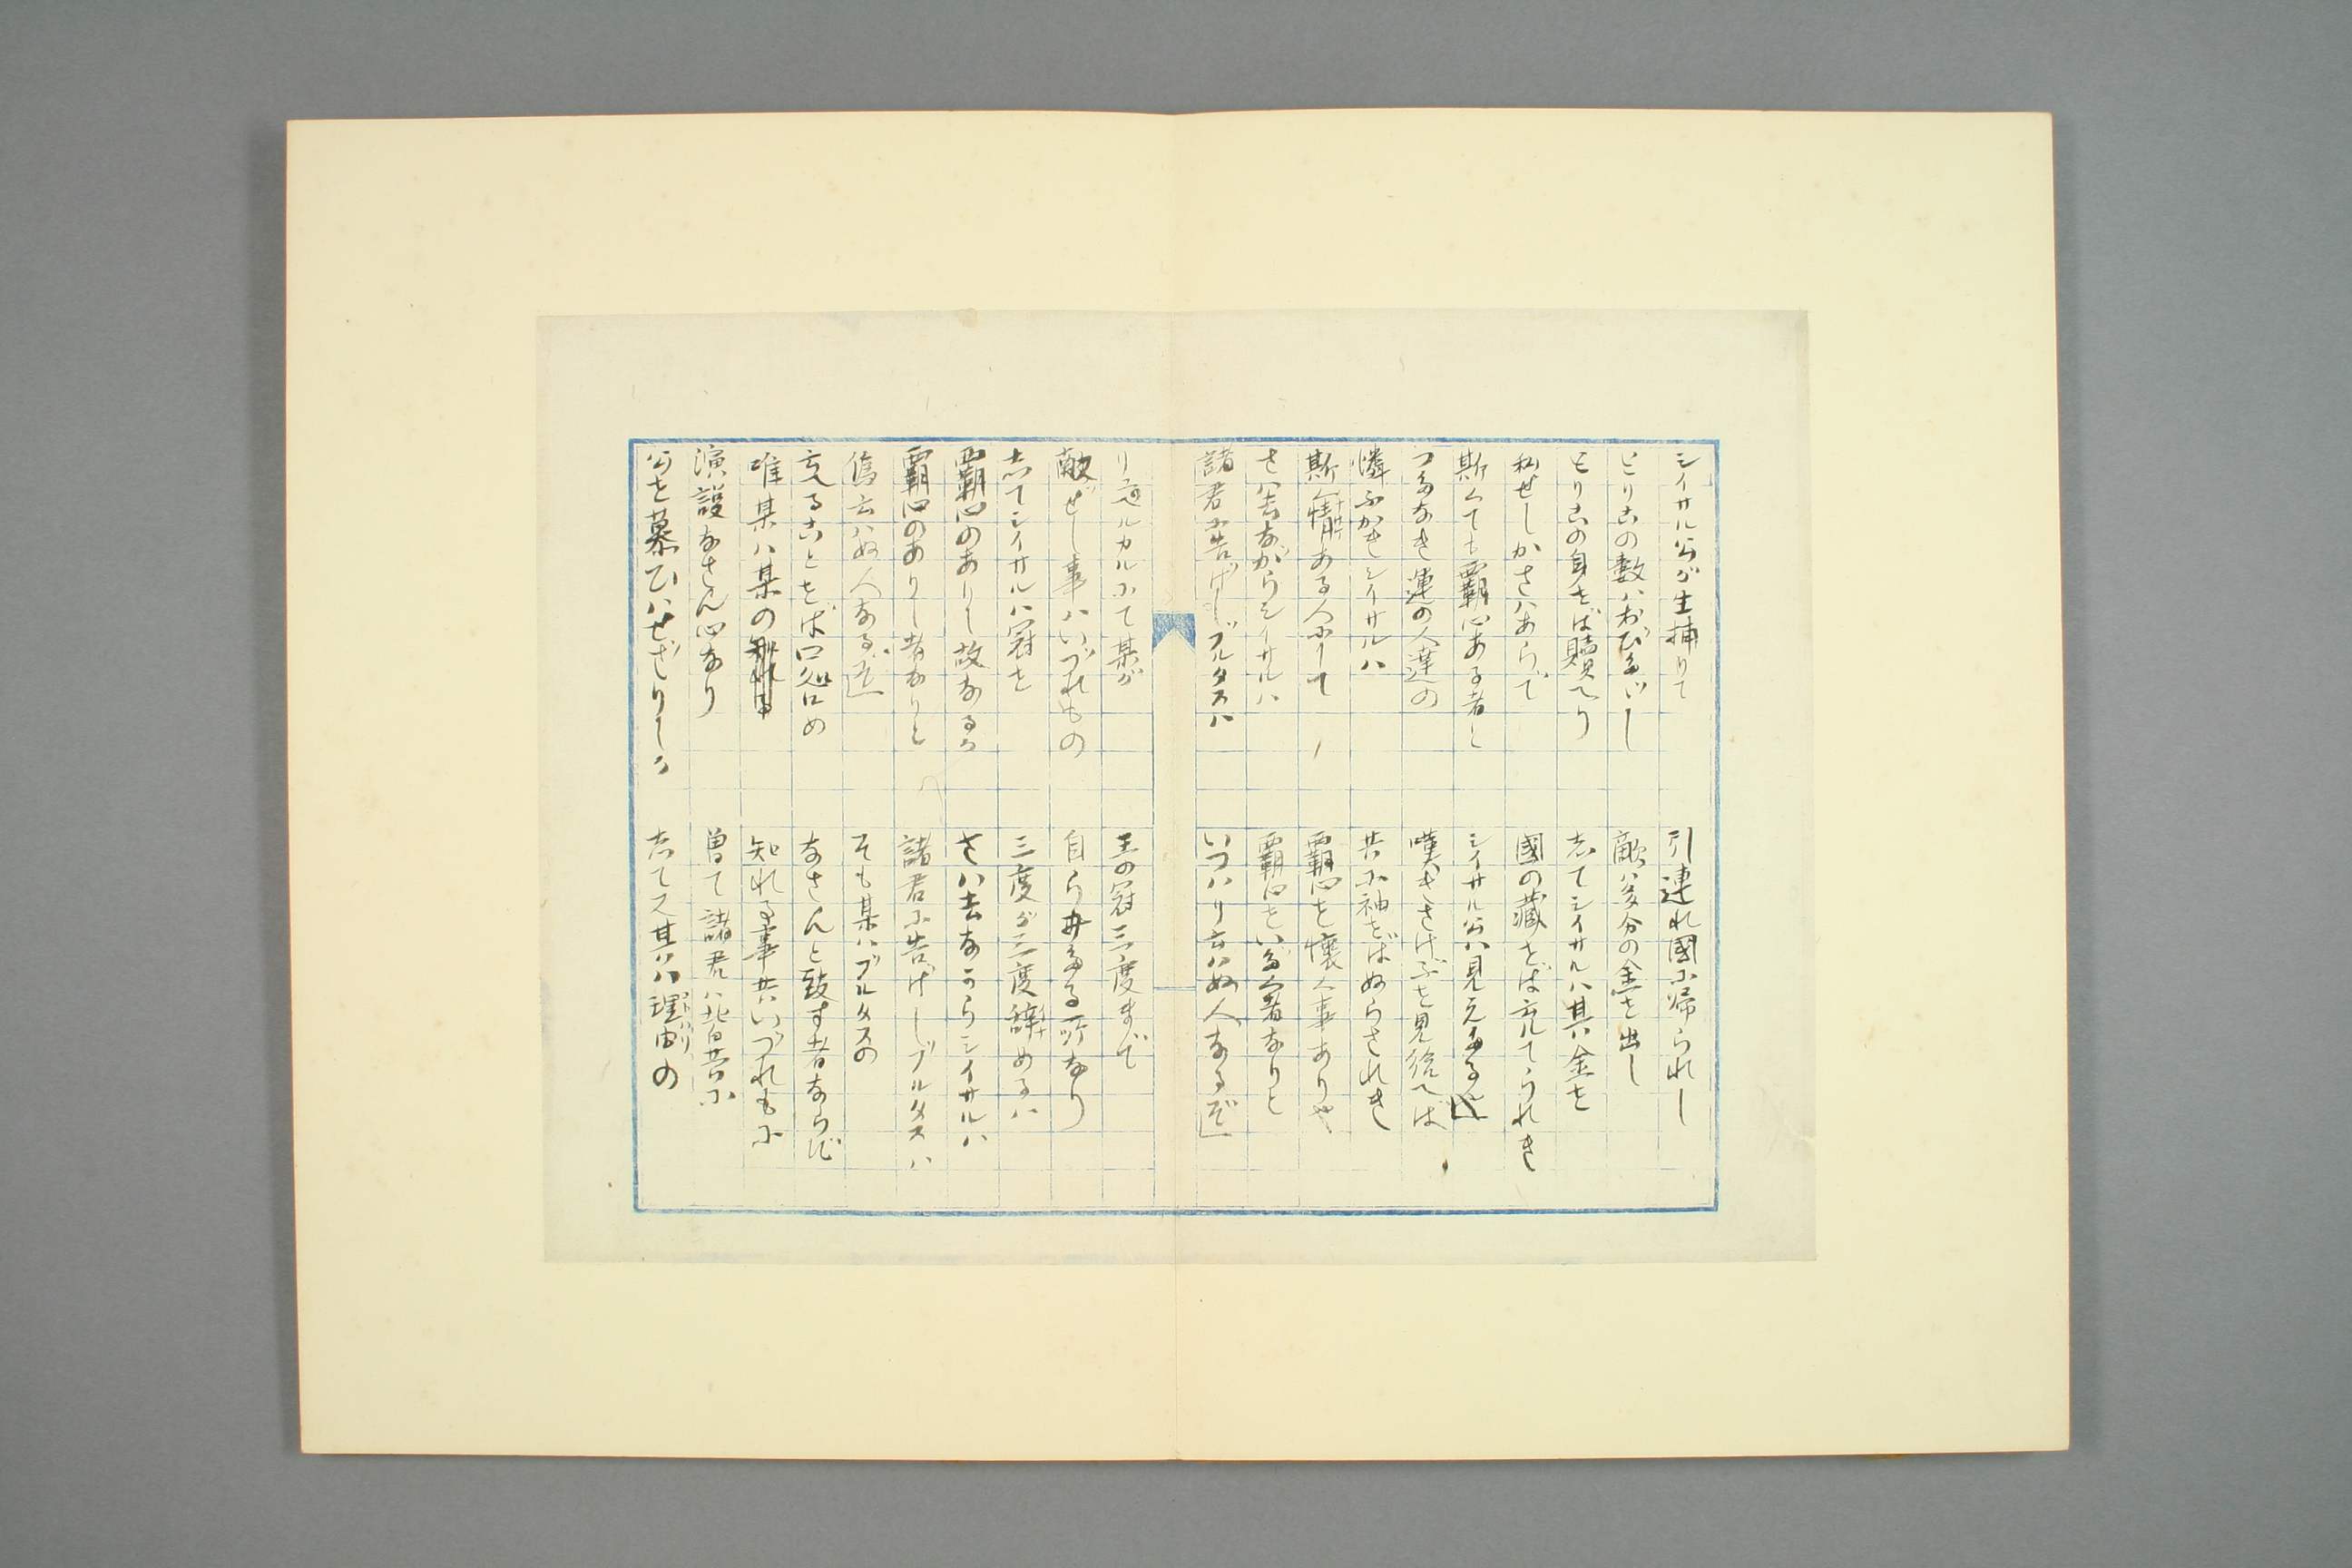 シイサル公が生捕りて　引連れ國に帰られし
とりこの數ハおびたゞし　敵ハ多分の金を出し
とりこの身をば贖へり　志てシイサルハ其金を
私せしかさハあらで　國の藏をば充てられき
斯くても覇心ある者と　シイサル公ハ見えたる
つたなき運の人達の　嘆きさけぶを見給へば
憐ふかきシイサルハ　共に袖をばぬらされき
斯く情ある人にして　覇心を懐く事ありや
さハ去ながらシイサルハ　覇心をいだく者なりと
諸君に告げしブルタスハ　いつハり云ハぬ人なるぞ」
ルカルにて某が　王の冠三度まで
獻ぜし事ハいづれもの　自ら たる所なり
志てシイサルハ冠を　三度が三度辭めるハ
覇心のありし故なるか　さハ去ながらシイサルハ
覇心のありし者なりと　諸君に告げしブルタスハ
僞云ハぬ人なるぞ」　そも某ハブルタスの
言へることをば口咎め　なさんと致す者ならず
唯某ハ某の　知れる事共いづれもに
演説なさん心なり　曽て諸君ハ皆共に
公を慕ひハせざりしか　志て又其ハ理由の